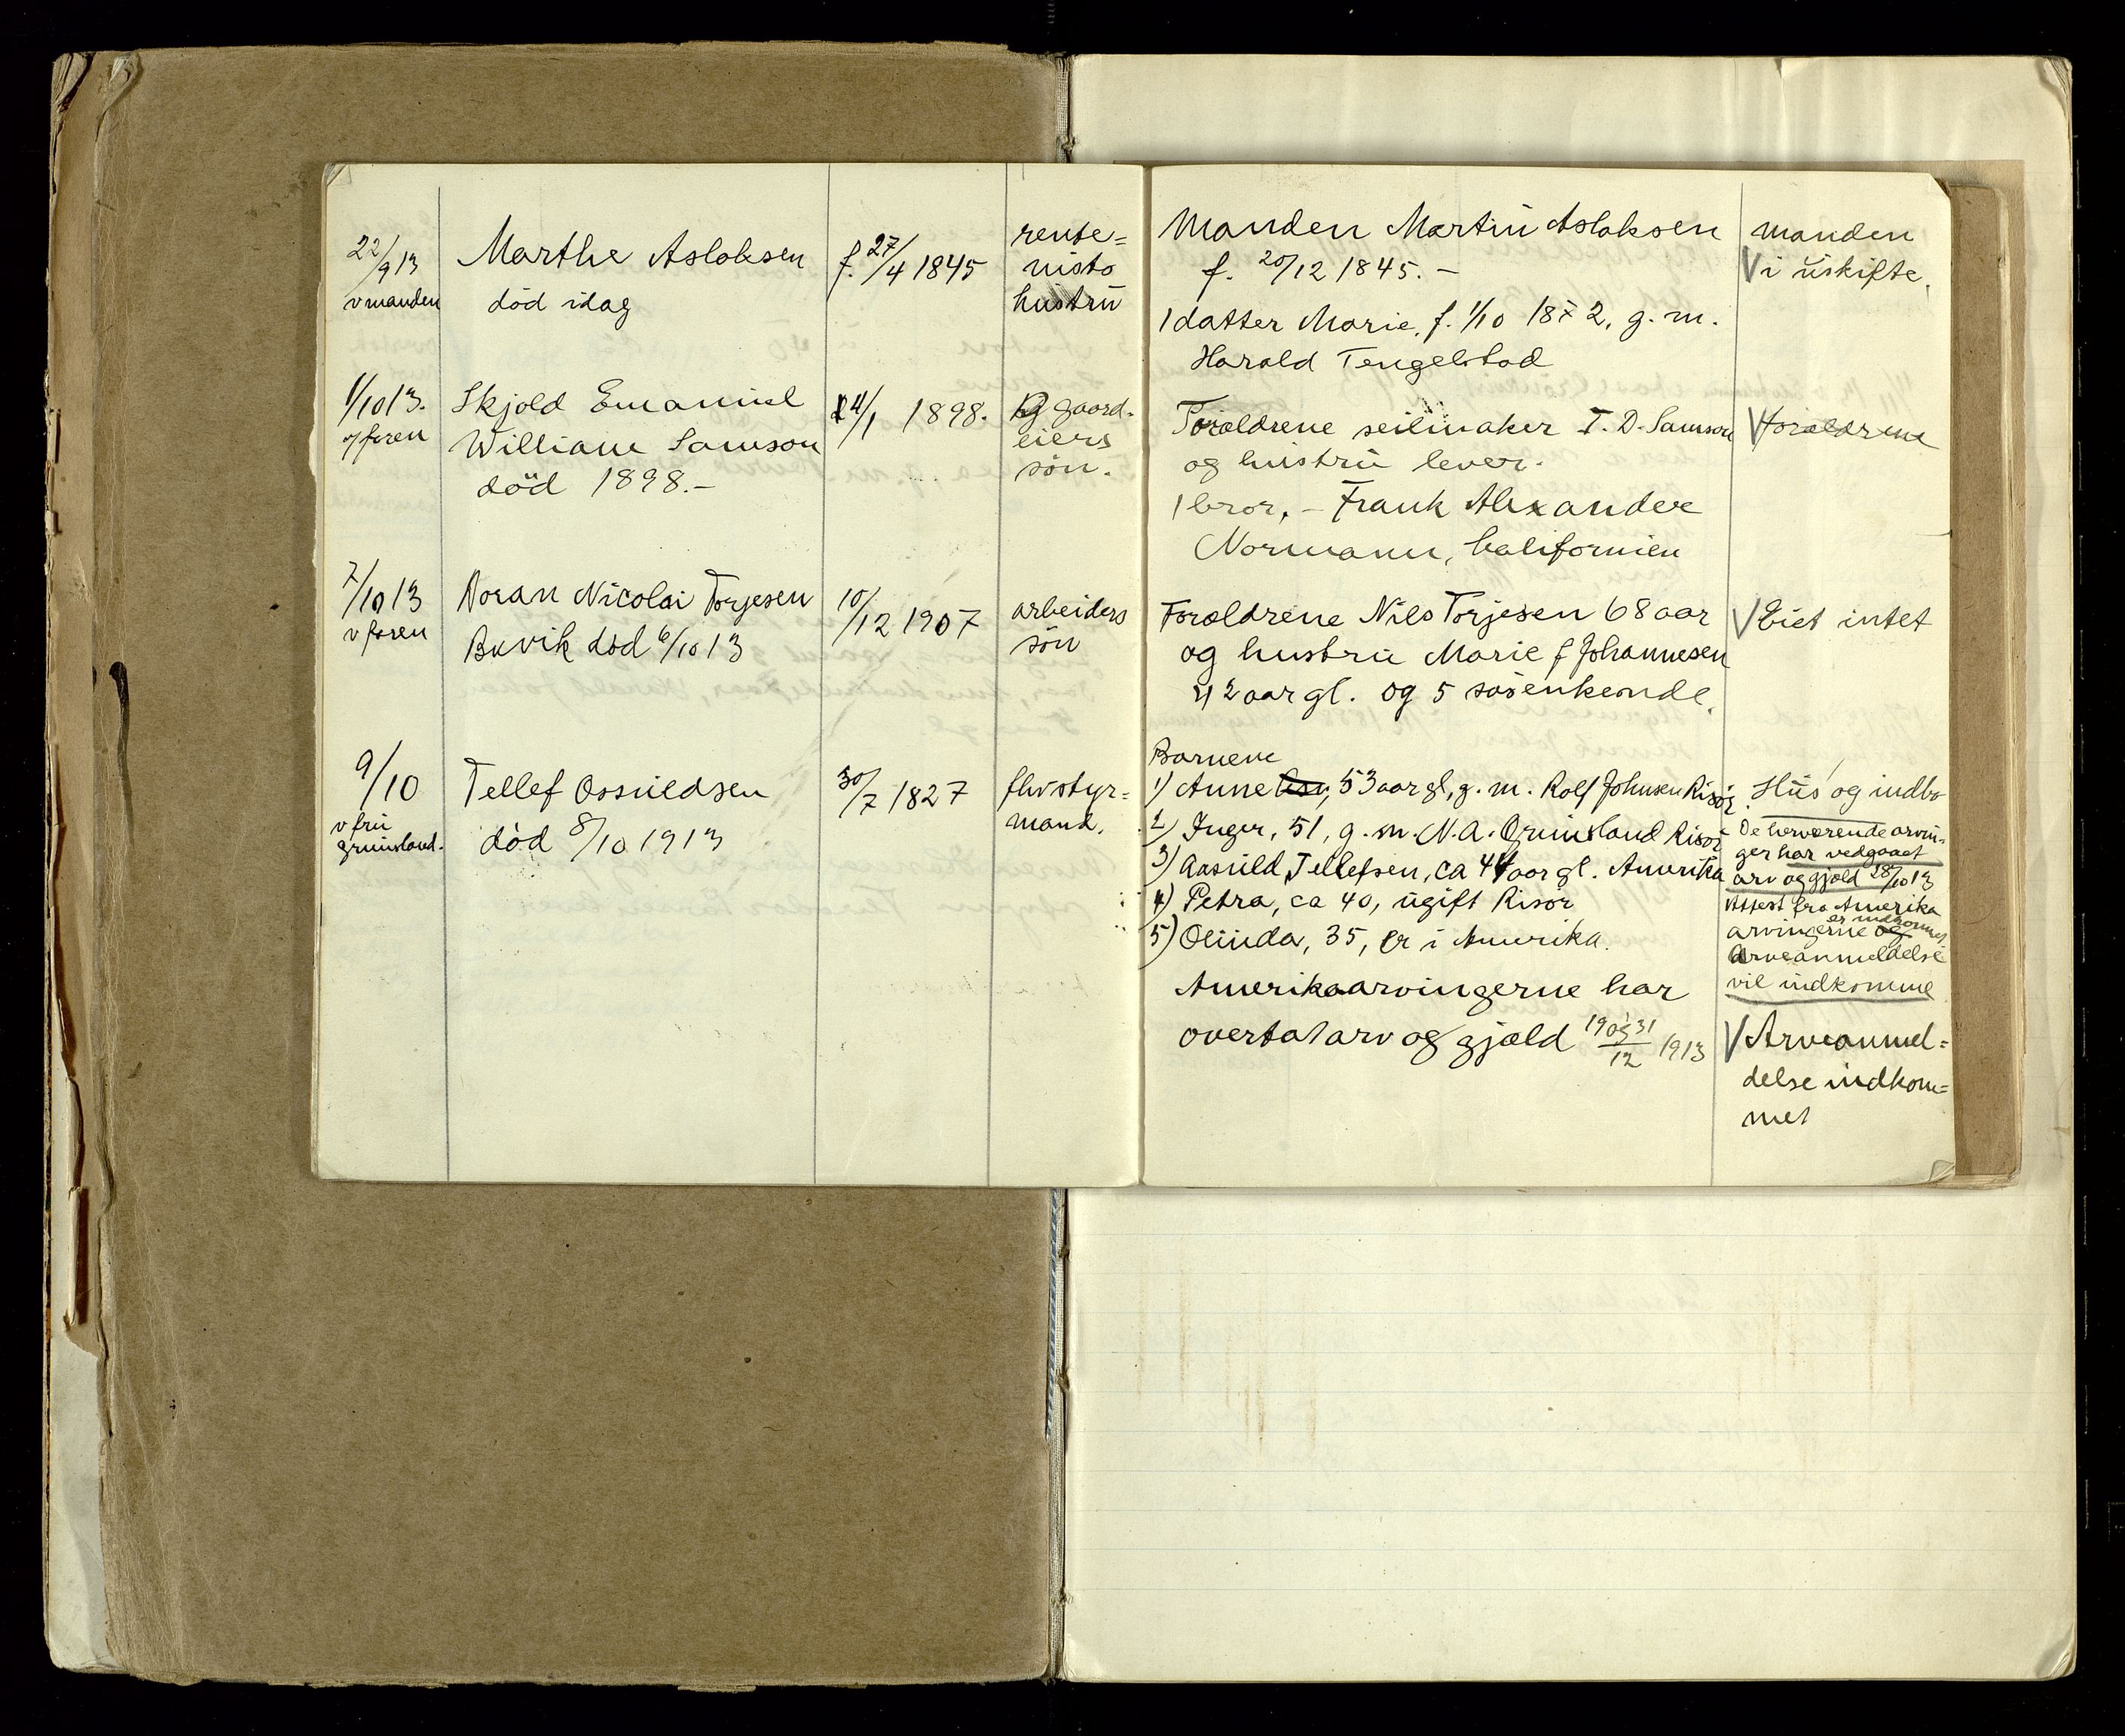 22/9 13
v manden
Marthe Aslaksen
död idag
f. 27/4 1845
rente=
nists
hustru
Manden Martin Aslaksen
f. 20/12 1845. -
1 datter Marie, f. 1/10 1872, g. m.
Harald Tengelstad
manden
V i uskifte.
1/10 13.
v/faren
Skjold Emanuel
William Samson
död 1898.-
24/1 1898.
gaard-
eiers
sön.
Foraldrene seilmaker T. D. Samson
og hustru lever.
1 bror, - Frank Alexander
Normann, Californien
V foraldrene
7/10 13
v faren
Noran Nicolai Torjesen
Buvik död 6/10 13
10/12 1907
arbeiders
sön
Foraldrene Nils Torjesen 68 aar
og hustru Marie f Johannesen
42 aar gl. og 5 sösenkende.
V Eiet intet
9/10
v fru
Grunsland.
Tellef Ossuldsen
död 8/10 1913
30/7 1827
fhv styr=
mand.
Barnene
1) Anne, 53 aar gl, g. m. Rolf Johnsen Risör
2) Inger, 51, g. m. N. A. Grunsland Risör
3) Aasuld Tellefsen, ca 44 aar gl. Amerika
4) Petra, ca 40, ugift Risör
5) Olinda, 35, er i Amerika.
Amerikaarvingerne har
overtat arv og gjæld 31/12 1913
Hus og indbo
De herværende arvin-
ger har vedgaaet
arv og gjæld 28/10 13
Attest fra Amerika
arvingerne er indkommet
og
Arveanmeldelse
vil indkomme
V Arveanmel=
delse indkom=
met